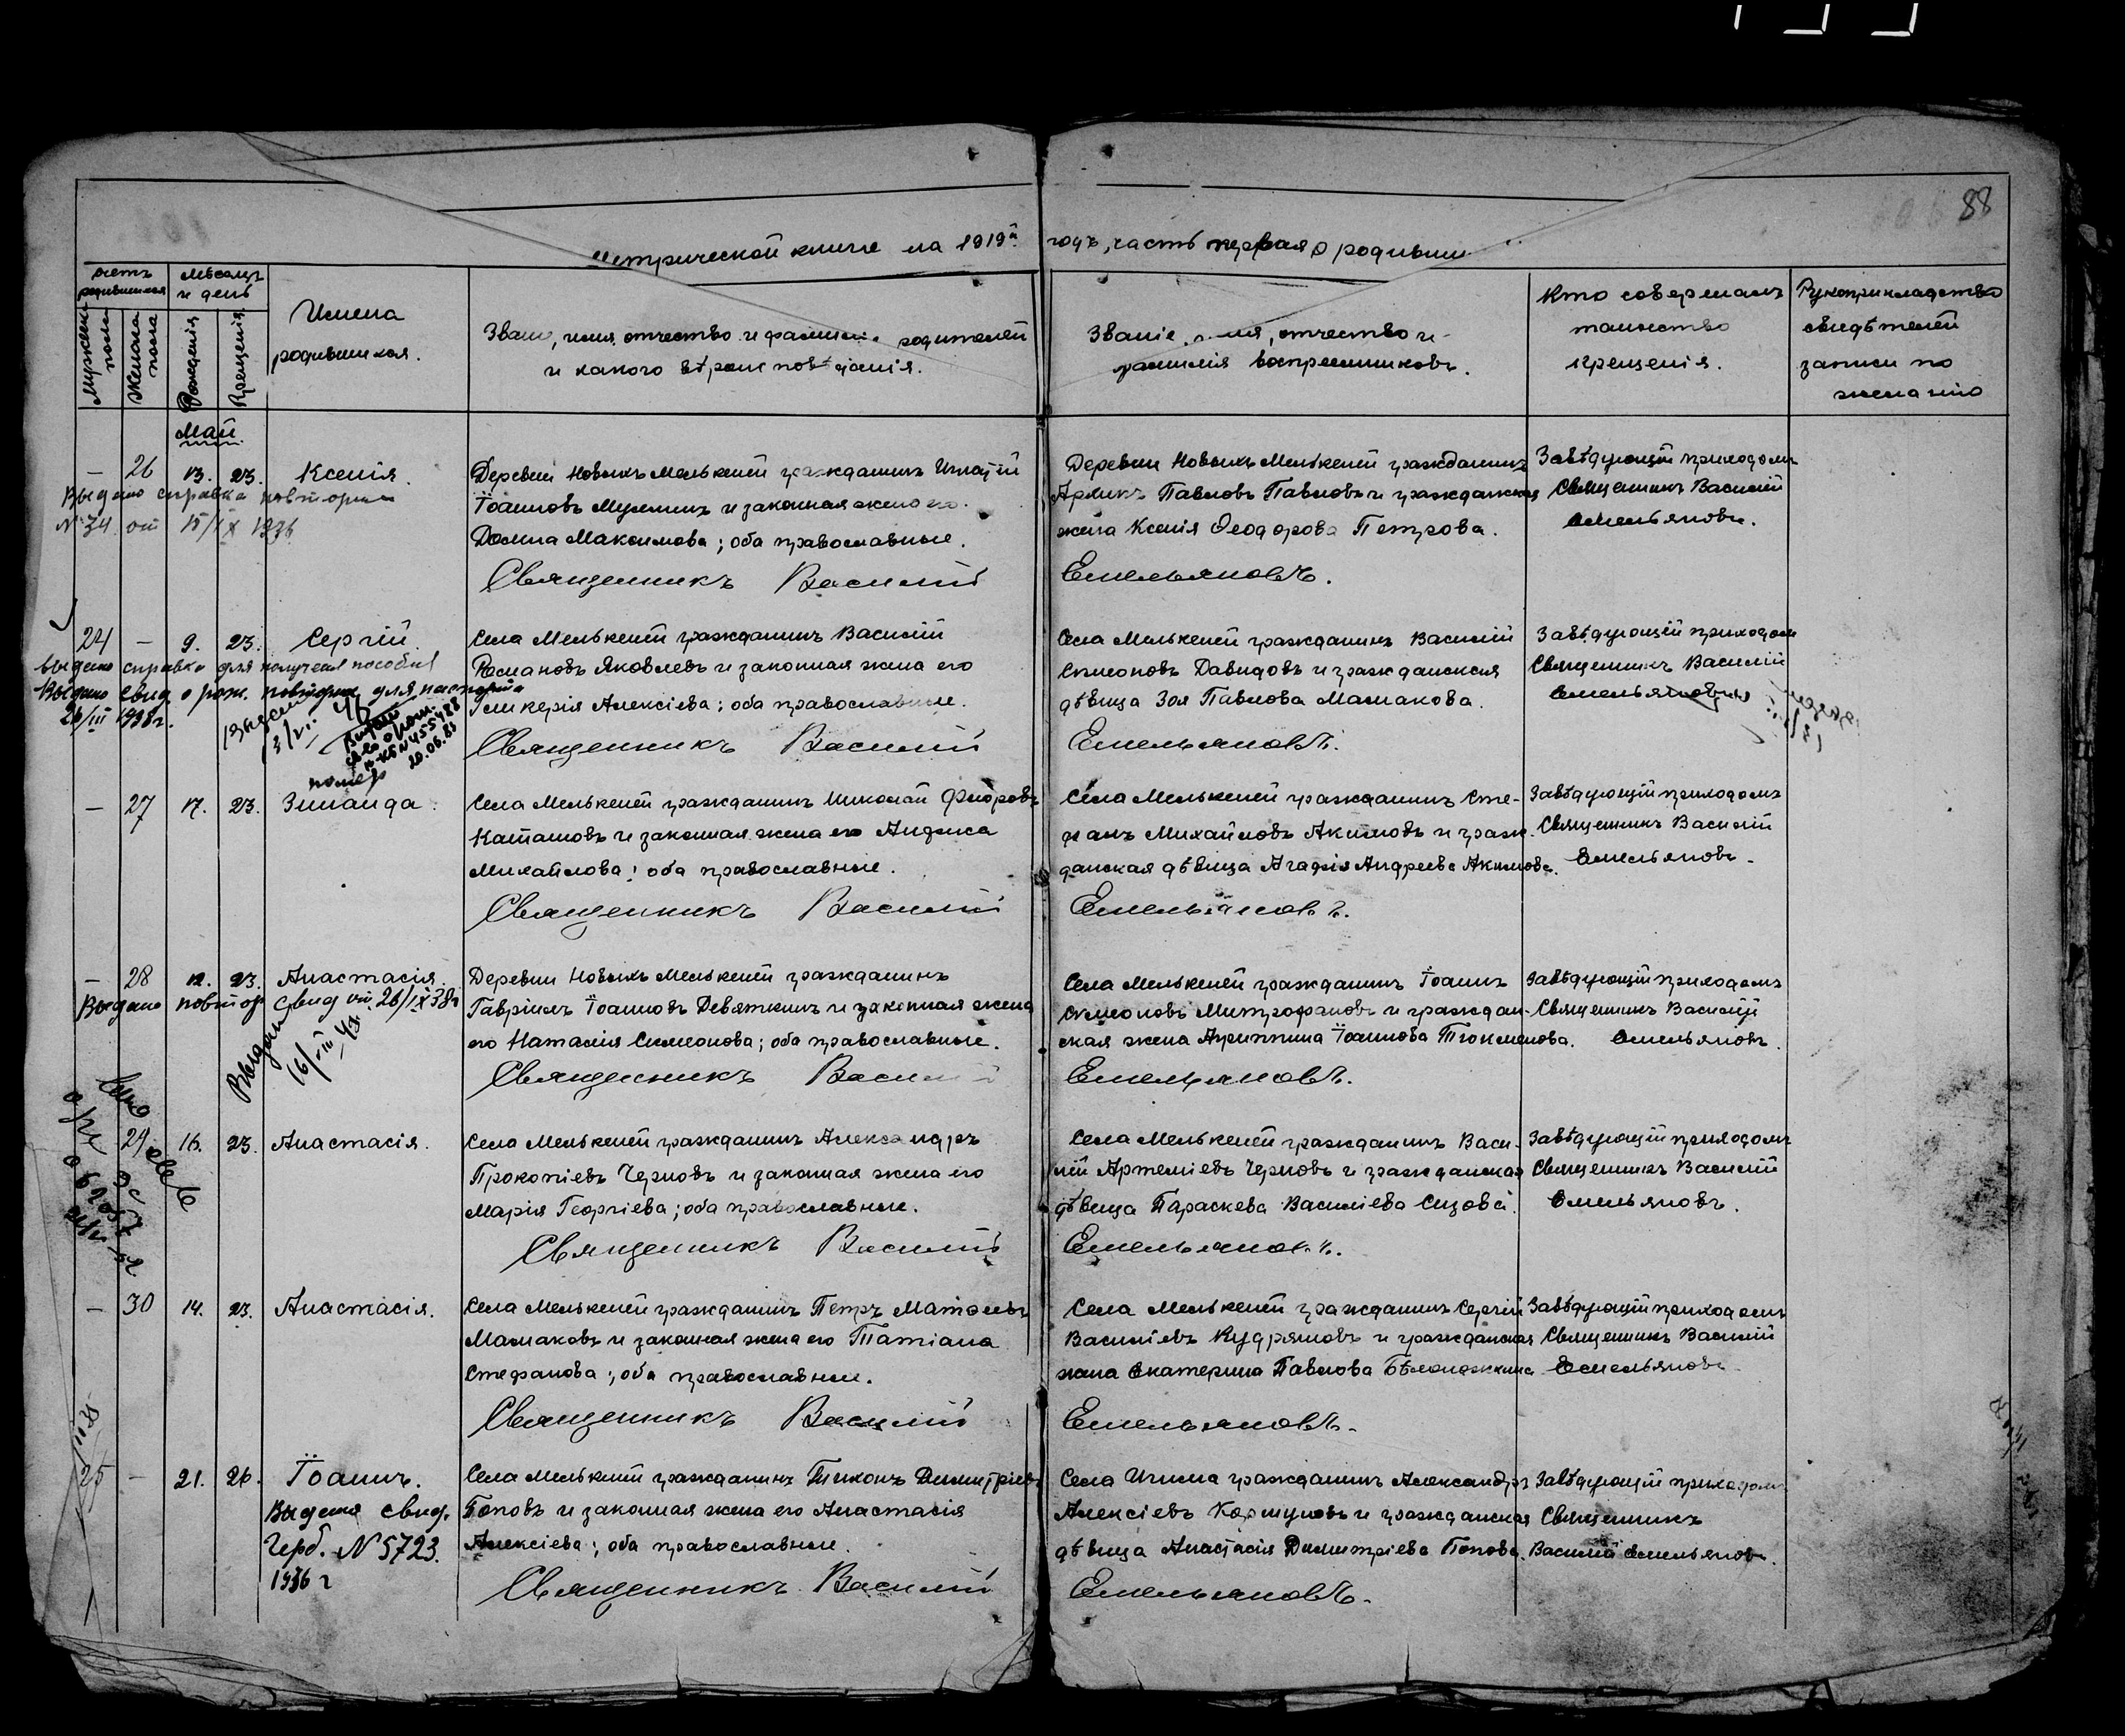 88
Метрической книги на 1919й годъ, часть первая о родивши
Счетъ родившихся
Мѣсяцъ и день
Мужеска пола
Женска пола
Рожденія
Крещенія
Имена
родившихся.
Званіе, имя, отчество и фамилія родителей
и какого вѣроисповѣданія.
Званіе, имя, отчество и
фамилія воспріемниковъ.
Кто совершалъ
таинство
крещенія.
Рукоприкладство
свидѣтелей
записи по
желанію
Май.
— 26 13. 23. Ксенія.
Выдано справка повторно
№ 34 от 15/IX 1936
Деревни Новыхъ Мелькеней гражданинъ Игнатій
Іоанновъ и законная жена его
Домна Максимова; оба православные.
Деревни Новыхъ Мелькеней гражданинъ
Павловъ Павловъ и гражданская
жена Ксенія Ѳеодорова Петрова.
Завѣдующій приходомъ
Священникъ Василій
Емельяновъ.
Священникъ Василій Емельяновъ.
24 — 9. 23. Сергій
Выдано справка для получения пособия
Выдано свид. о рож. повторно для паспорта
26/III 1938г.
20.06.83
Села Мелькеней гражданинъ Василій
Романовъ Яковлевъ и законная жена его
Гликерія Алексіева; оба православные.
Села Мелькеней гражданинъ Василій
Симеоновъ Давидовъ и гражданская
дѣвица Зоя Павлова Малмакова.
Завѣдующій приходомъ
Священникъ Василій
Емельяновъ
Священникъ Василій Емельяновъ.
— 27 17. 23. Зинаида.
Села Мелькеней гражданинъ Николай Флоровъ
Каташовъ и законная жена его
Михайлова; оба православные.
Села Мелькеней гражданинъ Сте-
фанъ Михайловъ Акимовъ и граж-
данская дѣвица Агафія Андреева Акимова.
Завѣдующій приходомъ
Священникъ Василій
Емельяновъ.
Священникъ Василій Емельяновъ.
— 28 12. 23. Анастасія.
Выдано повтор свид от 26/IX 38г
Выдан
16/VIII
Деревни Новыхъ Мелькеней гражданинъ
Гавріилъ Іоанновъ Девяткинъ и законная жена
его Наталія Симеонова; оба православные.
Села Мелькеней гражданинъ Іоаннъ
Симеоновъ Митрофановъ и граждан-
ская жена Агриппина Іоаннова
Завѣдующій приходомъ
Священникъ Василій
Емельяновъ.
Священникъ Василій Емельяновъ.
29 16. 23. Анастасія.
Села Мелькеней гражданинъ Александръ
Прокопіевъ Черновъ и законная жена его
Марія Георгіева; оба православные.
Села Мелькеней гражданинъ Васи-
лій Артеміевъ Черновъ и гражданская
дѣвица Параскева Василіева Сизова.
Завѣдующій приходомъ
Священникъ Василій
Емельяновъ.
Священникъ Василій Емельяновъ.
— 30 14. 23. Анастасія.
Села Мелькеней гражданинъ Петръ Матѳеевъ
Малмаковъ и законная жена его Татіана
Стефанова; оба православные.
Села Мелькеней гражданинъ Сергій
Василіевъ Кудряшовъ и гражданская
жена Екатерина Павлова
Завѣдующій приходомъ
Священникъ Василій
Емельяновъ
Священникъ Василій Емельяновъ.
25 — 21. 26. Іоаннъ.
Выдана свид.
Герб. № 5723.
1936 г
Села Мелькеней гражданинъ Тихонъ Димитріевъ
Поповъ и законная жена его Анастасія
Алексіева; оба православные.
Села гражданинъ Александръ
Алексіевъ Коршуновъ и гражданская
дѣвица Анастасія Димитріева Попова.
Завѣдующій приходомъ
Священникъ
Василій Емельяновъ.
Священникъ Василій Емельяновъ.